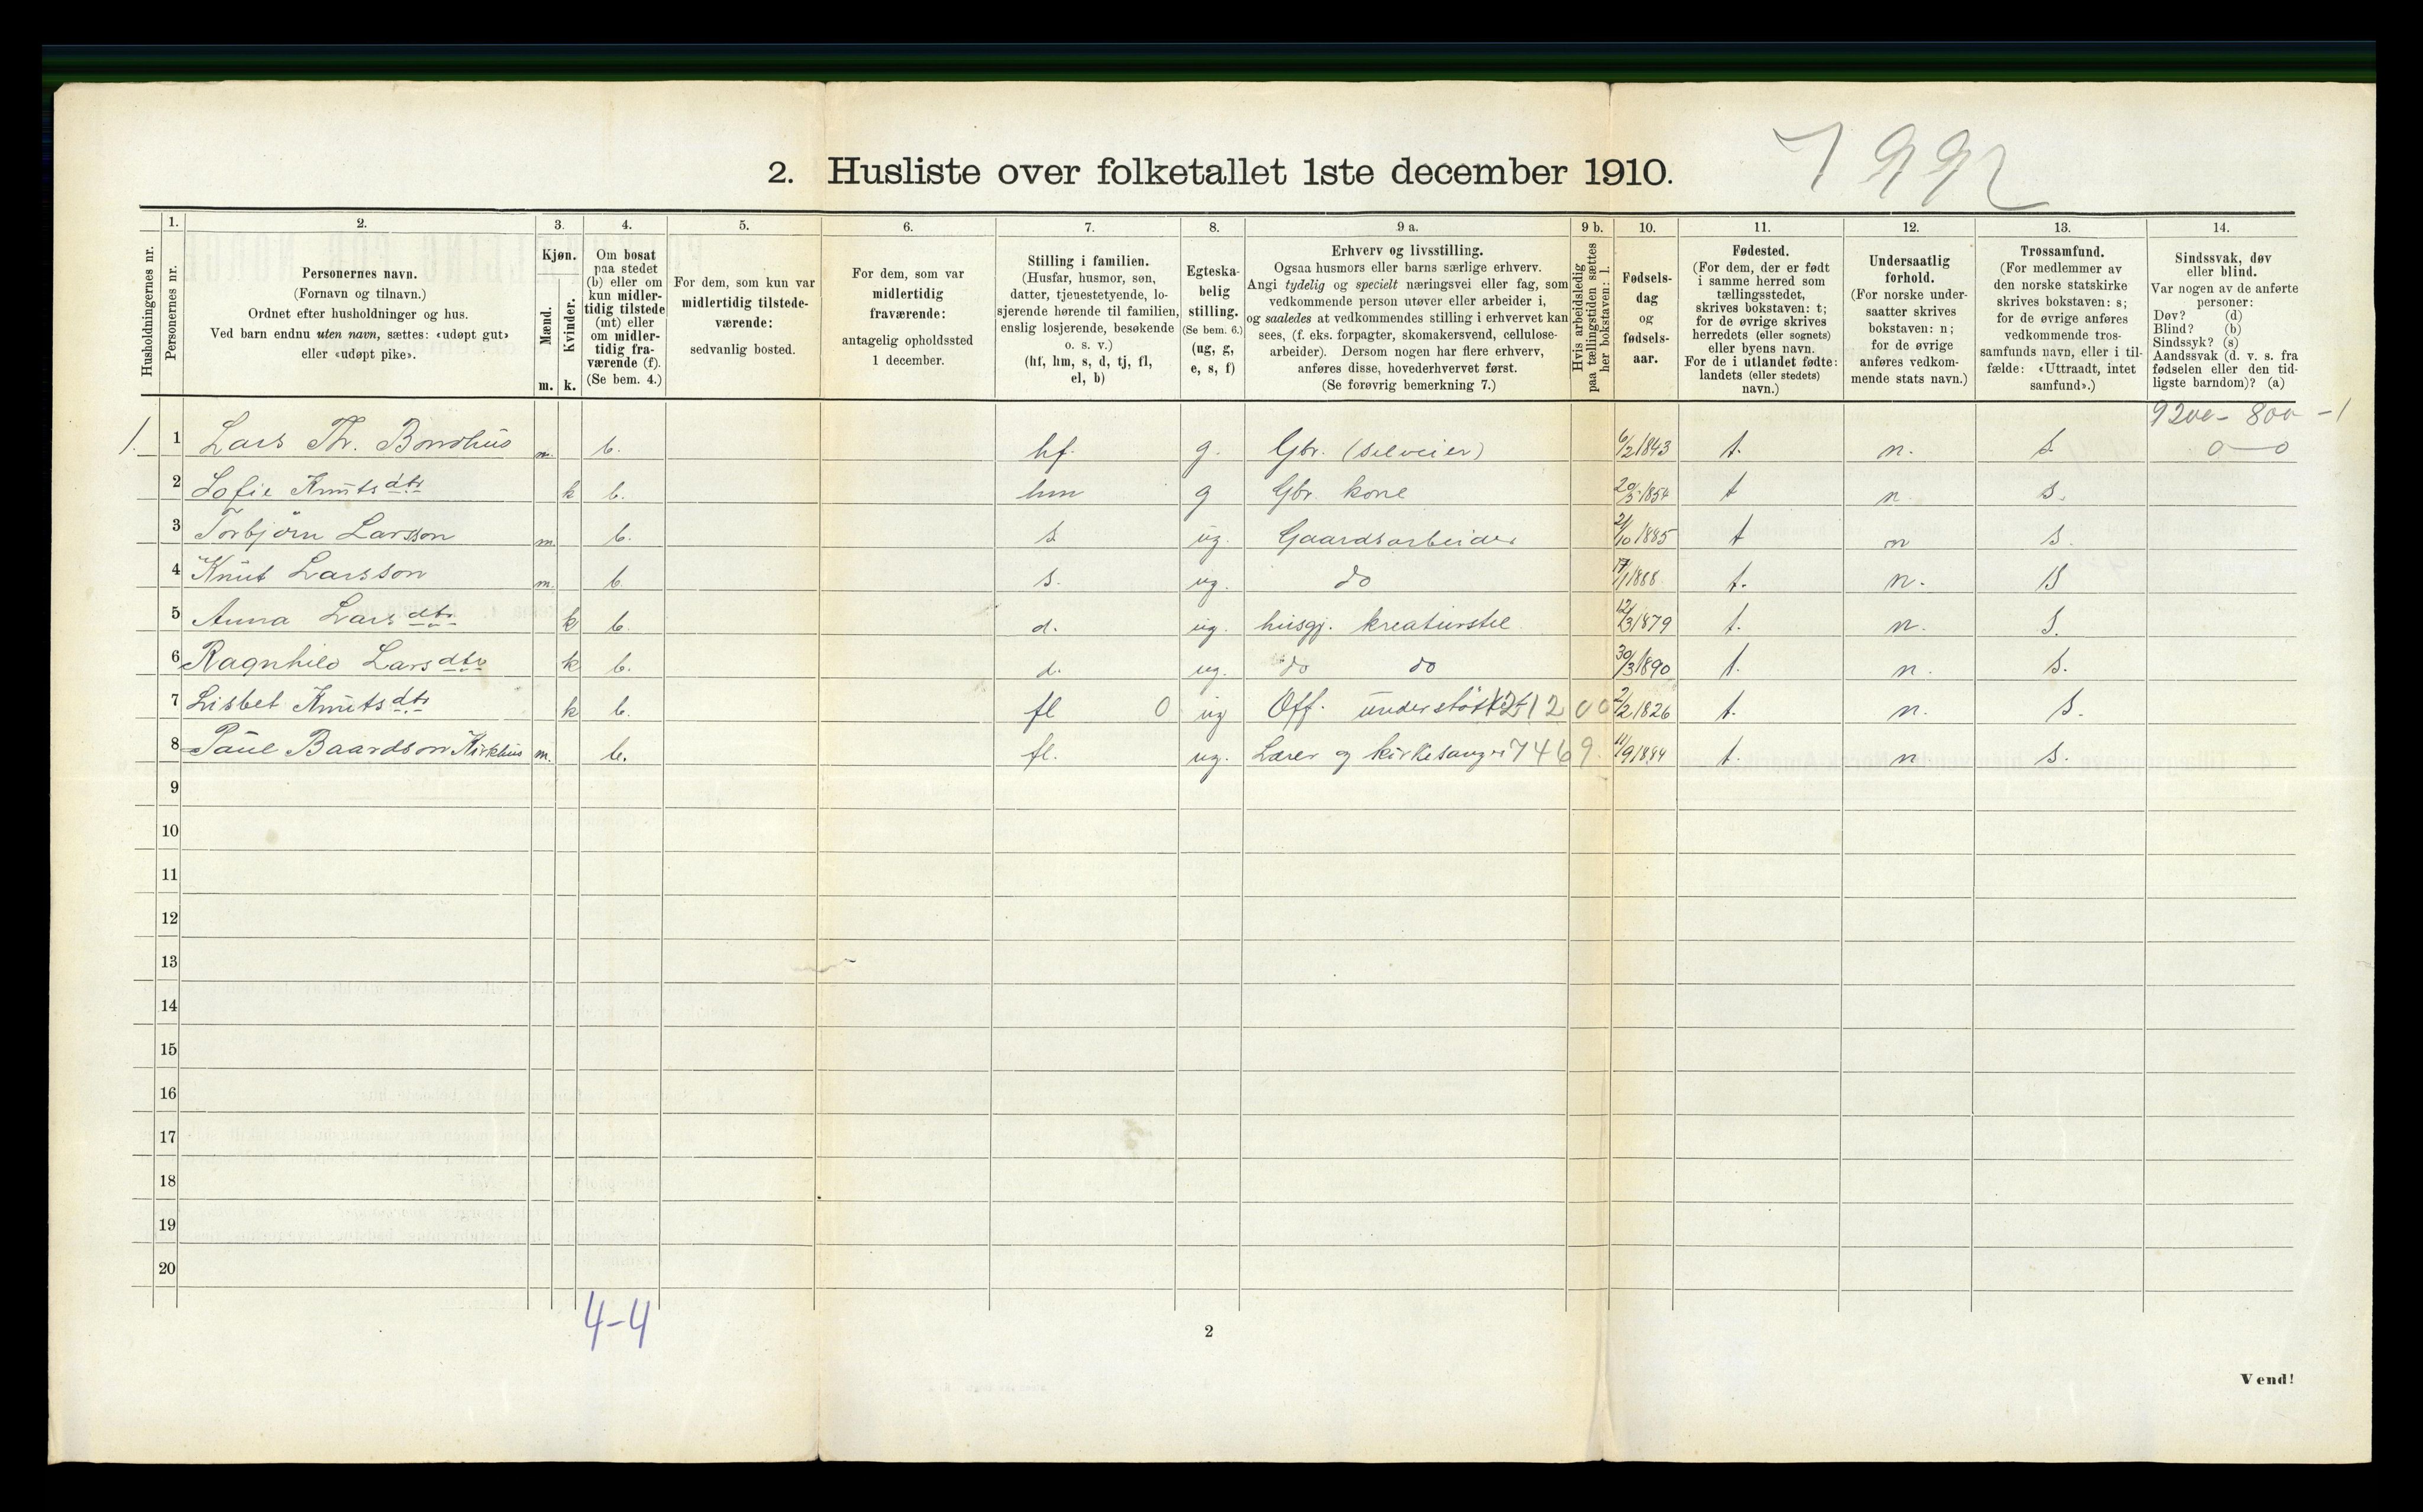 2. Husliste over folketallet 1ste december 1910.
7992
Husholdningernes nr.
1.
Personernes nr.
2.
Personernes navn.
(Fornavn og tilnavn.)
Ordnet efter husholdninger og hus.
Ved barn endnu uten navn, sættes: «udøpt gut»
eller «udøpt pike».
3.
Kjøn.
Mænd.
m.
Kvinder.
k.
4.
Om bosat
paa stedet
(b) eller om
kun midler-
tidig tilstede
(mt) eller
om midler-
tidig fra-
værende (f).
(Se bem. 4.)
5.
For dem, som kun var
midlertidig tilstede-
værende:
sedvanlig bosted.
6.
For dem, som var
midlertidig
fraværende:
antagelig opholdssted
1 december.
7.
Stilling i familien.
(Husfar, husmor, søn,
datter, tjenestetyende, lo-
sjerende hørende til familien,
enslig losjerende, besøkende
o. s. v.)
(hf, hm, s, d, tj, fl,
el, b)
8.
Egteska-
belig
stilling.
(Se bem. 6.)
(ug, g,
e, s, f)
9 a.
Erhverv og livsstilling.
Ogsaa husmors eller barns særlige erhverv.
Angi tydelig og specielt næringsvei eller fag, som
vedkommende person utøver eller arbeider i,
og saaledes at vedkommendes stilling i erhvervet kan
sees, (f. eks. forpagter, skomakersvend, cellulose-
arbeider). Dersom nogen har flere erhverv,
anføres disse, hovederhvervet først.
(Se forøvrig bemerkning 7.)
9 b.
Hvis arbeidsledig
paa tællingstiden sættes
her bokstaven: l.
10.
Fødsels-
dag
og
fødsels-
aar.
11.
Fødested.
(For dem, der er født
i samme herred som
tællingsstedet,
skrives bokstaven: t;
for de øvrige skrives
herredets (eller sognets)
eller byens navn.
For de i utlandet fødte:
landets (eller stedets)
navn.)
12.
Undersaatlig
forhold.
(For norske under-
saatter skrives
bokstaven: n;
for de øvrige
anføres vedkom-
mende stats navn.)
13.
Trossamfund.
(For medlemmer av
den norske statskirke
skrives bokstaven: s;
for de øvrige anføres
vedkommende tros-
samfunds navn, eller i til-
fælde: «Uttraadt, intet
samfund».)
14.
Sindssvak, døv
eller blind.
Var nogen av de anførte
personer:
Døv? (d)
Blind? (b)
Sindssyk? (s)
Aandssvak (d. v. s. fra
fødselen eller den tid-
ligste barndom)? (a)
9200 - 800 - 1
1. 1 Lars Th. Bondhus m. b. hf. g. Gbr. (selveier) 6/2 1843 t. n. s. 0-0
2 Sofie Knutsdtr k b. hm g Gbr. kone 20/3 1854 t n s.
3 Torbjørn Larsson m. b. s ug. Gaardsarbeider 21/10 1885 t n s.
4 Knut Larsson m. b. s. ug. do 17/1 1888 t. n. s
5 Anna Larsdtr. k b. d. ug. husgj. kreaturstel 12/3 1879 t. n. s.
6 Ragnhild Larsdtr k b. d. ug. do do 30/3 1890 t. n. s.
7 Lisbet Knutsdtr k b. fl 0 ug Off. understøttet 1200 2/2 1826 t. n. s.
8 Paul Baardson Kirkhus m. b. fl. ug. Lærer og kirkesanger 7469. 11/9 1884 t. n s.
9
10
11
12
13
14
15
16
17
18
19
20
4-4
2
Vend!